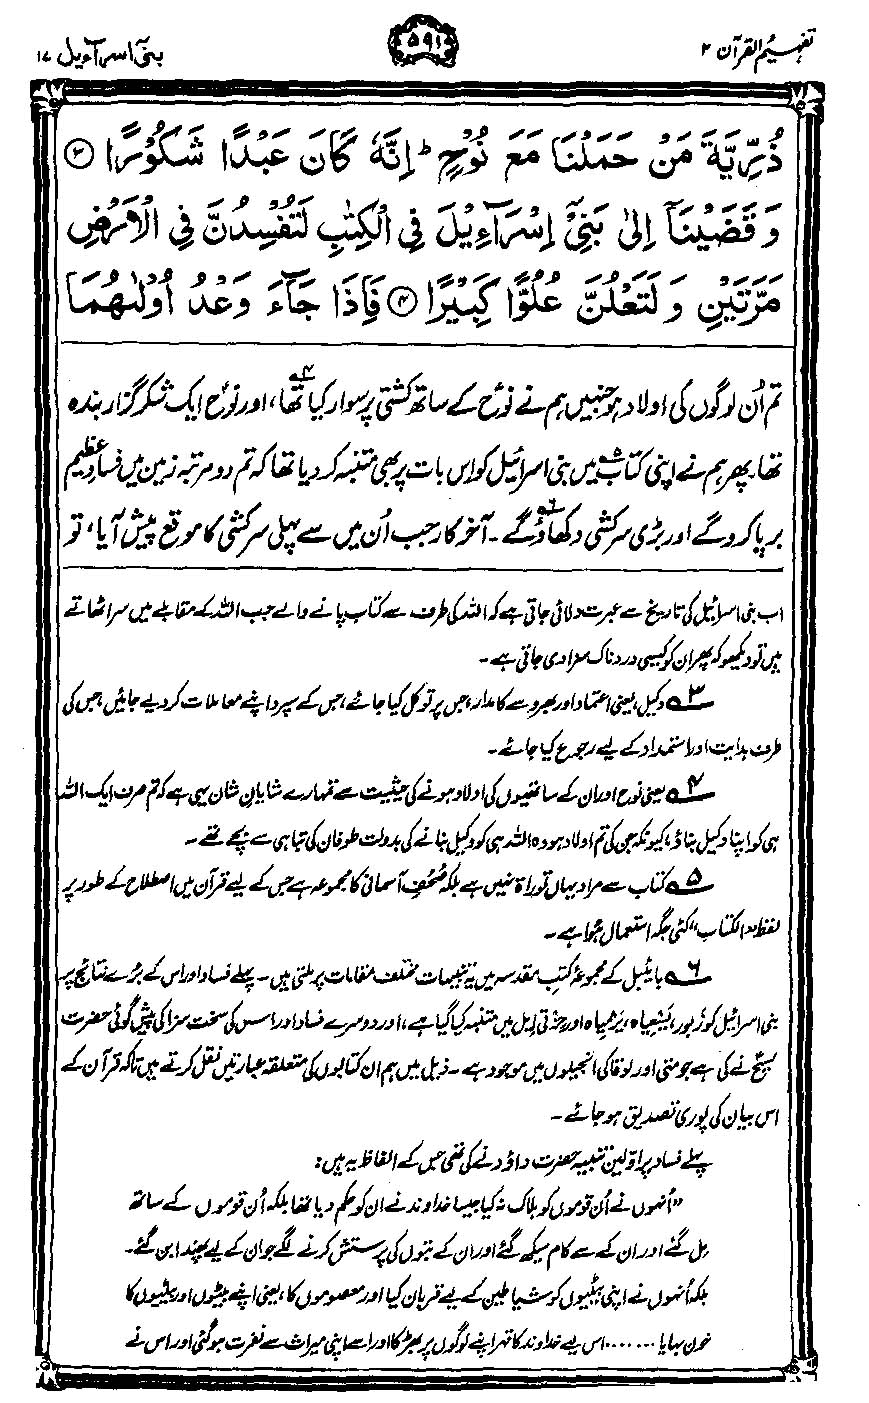 تفہیم القرآن ۲
۵۹۱
بنی اسرآءیل ۱۷
ذُرِّيَّةَ مَنْ حَمَلْنَا مَعَ نُوْحٍ ؕ اِنَّهٗ كَانَ عَبْدًا شَكُوْرًا ﴿۳﴾
وَ قَضَيْنَاۤ اِلٰى بَنِيْۤ اِسْرَآءِيْلَ فِي الْكِتٰبِ لَتُفْسِدُنَّ فِي الْاَرْضِ
مَرَّتَيْنِ وَ لَتَعْلُنَّ عُلُوًّا كَبِيْرًا ﴿۴﴾ فَاِذَا جَآءَ وَعْدُ اُوْلٰىهُمَا
تم اُن لوگوں کی اولاد ہو جنہیں ہم نے نوحؑ کے ساتھ کشتی پر سوار کیا تھا۴، اور نوحؑ ایک شکر گزار بندہ
تھا۔ پھر ہم نے اپنی کتاب۵ میں بنی اسرائیل کو اس بات پر بھی متنبہ کر دیا تھا کہ تم دو مرتبہ زمین میں فسادِ عظیم
برپا کرو گے اور بڑی سرکشی دکھاؤ گے۶۔ آخر کار جب اُن میں سے پہلی سرکشی کا موقع پیش آیا، تو
اب بنی اسرائیل کی تاریخ سے عبرت دلائی جاتی ہے کہ اللہ کی طرف سے کتاب پانے والے جب اللہ کے مقابلے میں سر اٹھاتے
ہیں تو دیکھو کہ پھر ان کو کیسی دردناک سزا دی جاتی ہے۔
۳ وکیل، یعنی اعتماد اور بھروسے کا مدار، جس پر توکل کیا جائے، جس کے سپرد اپنے معاملات کر دیے جائیں، جس کی
طرف ہدایت اور استمداد کے لیے رجوع کیا جائے۔
۴ یعنی نوح اور ان کے ساتھیوں کی اولاد ہونے کی حیثیت سے تمہارے شایانِ شان یہی ہے کہ تم صرف ایک اللہ
ہی کو اپنا وکیل بناؤ، کیونکہ جن کی تم اولاد ہو وہ اللہ ہی کو وکیل بنانے کی بدولت طوفان کی تباہی سے بچے تھے۔
۵ کتاب سے مراد یہاں توراۃ نہیں ہے بلکہ صُحُفِ آسمانی کا مجموعہ ہے جس کے لیے قرآن میں اصطلاح کے طور پر
لفظ ”الکتاب“ کئی جگہ استعمال ہوا ہے۔
۶ بائیبل کے مجموعۂ کتبِ مقدسہ میں یہ تنبیہات مختلف مقامات پر ملتی ہیں۔ پہلے فساد اور اس کے بُرے نتائج پر
بنی اسرائیل کو زبور، یسعیاہ، یرمیاہ اور حزقی ایل میں متنبہ کیا گیا ہے، اور دوسرے فساد اور اس کی سخت سزا کی پیش گوئی حضرت
مسیح نے کی ہے جو متی اور لوقا کی انجیلوں میں موجود ہے۔ ذیل میں ہم ان کتابوں کی متعلقہ عبارتیں نقل کرتے ہیں تاکہ قرآن کے
اس بیان کی پوری تصدیق ہو جائے۔
پہلے فساد پر اولین تنبیہ حضرت داؤد نے کی تھی جس کے الفاظ یہ ہیں:
”اُنہوں نے اُن قوموں کو ہلاک نہ کیا جیسا خداوند نے ان کو حکم دیا تھا بلکہ اُن قوموں کے ساتھ
مل گئے اور ان کے سے کام سیکھ گئے اور ان کے بتوں کی پرستش کرنے لگے جو ان کے لیے پھندا بن گئے۔
بلکہ اُنہوں نے اپنی بیٹیوں کو شیاطین کے لیے قربان کیا اور معصوموں کا، یعنی اپنے بیٹوں اور بیٹیوں کا
خون بہایا ....... اس لیے خداوند کا قہر اپنے لوگوں پر بھڑکا اور اسے اپنی میراث سے نفرت ہو گئی اور اس نے